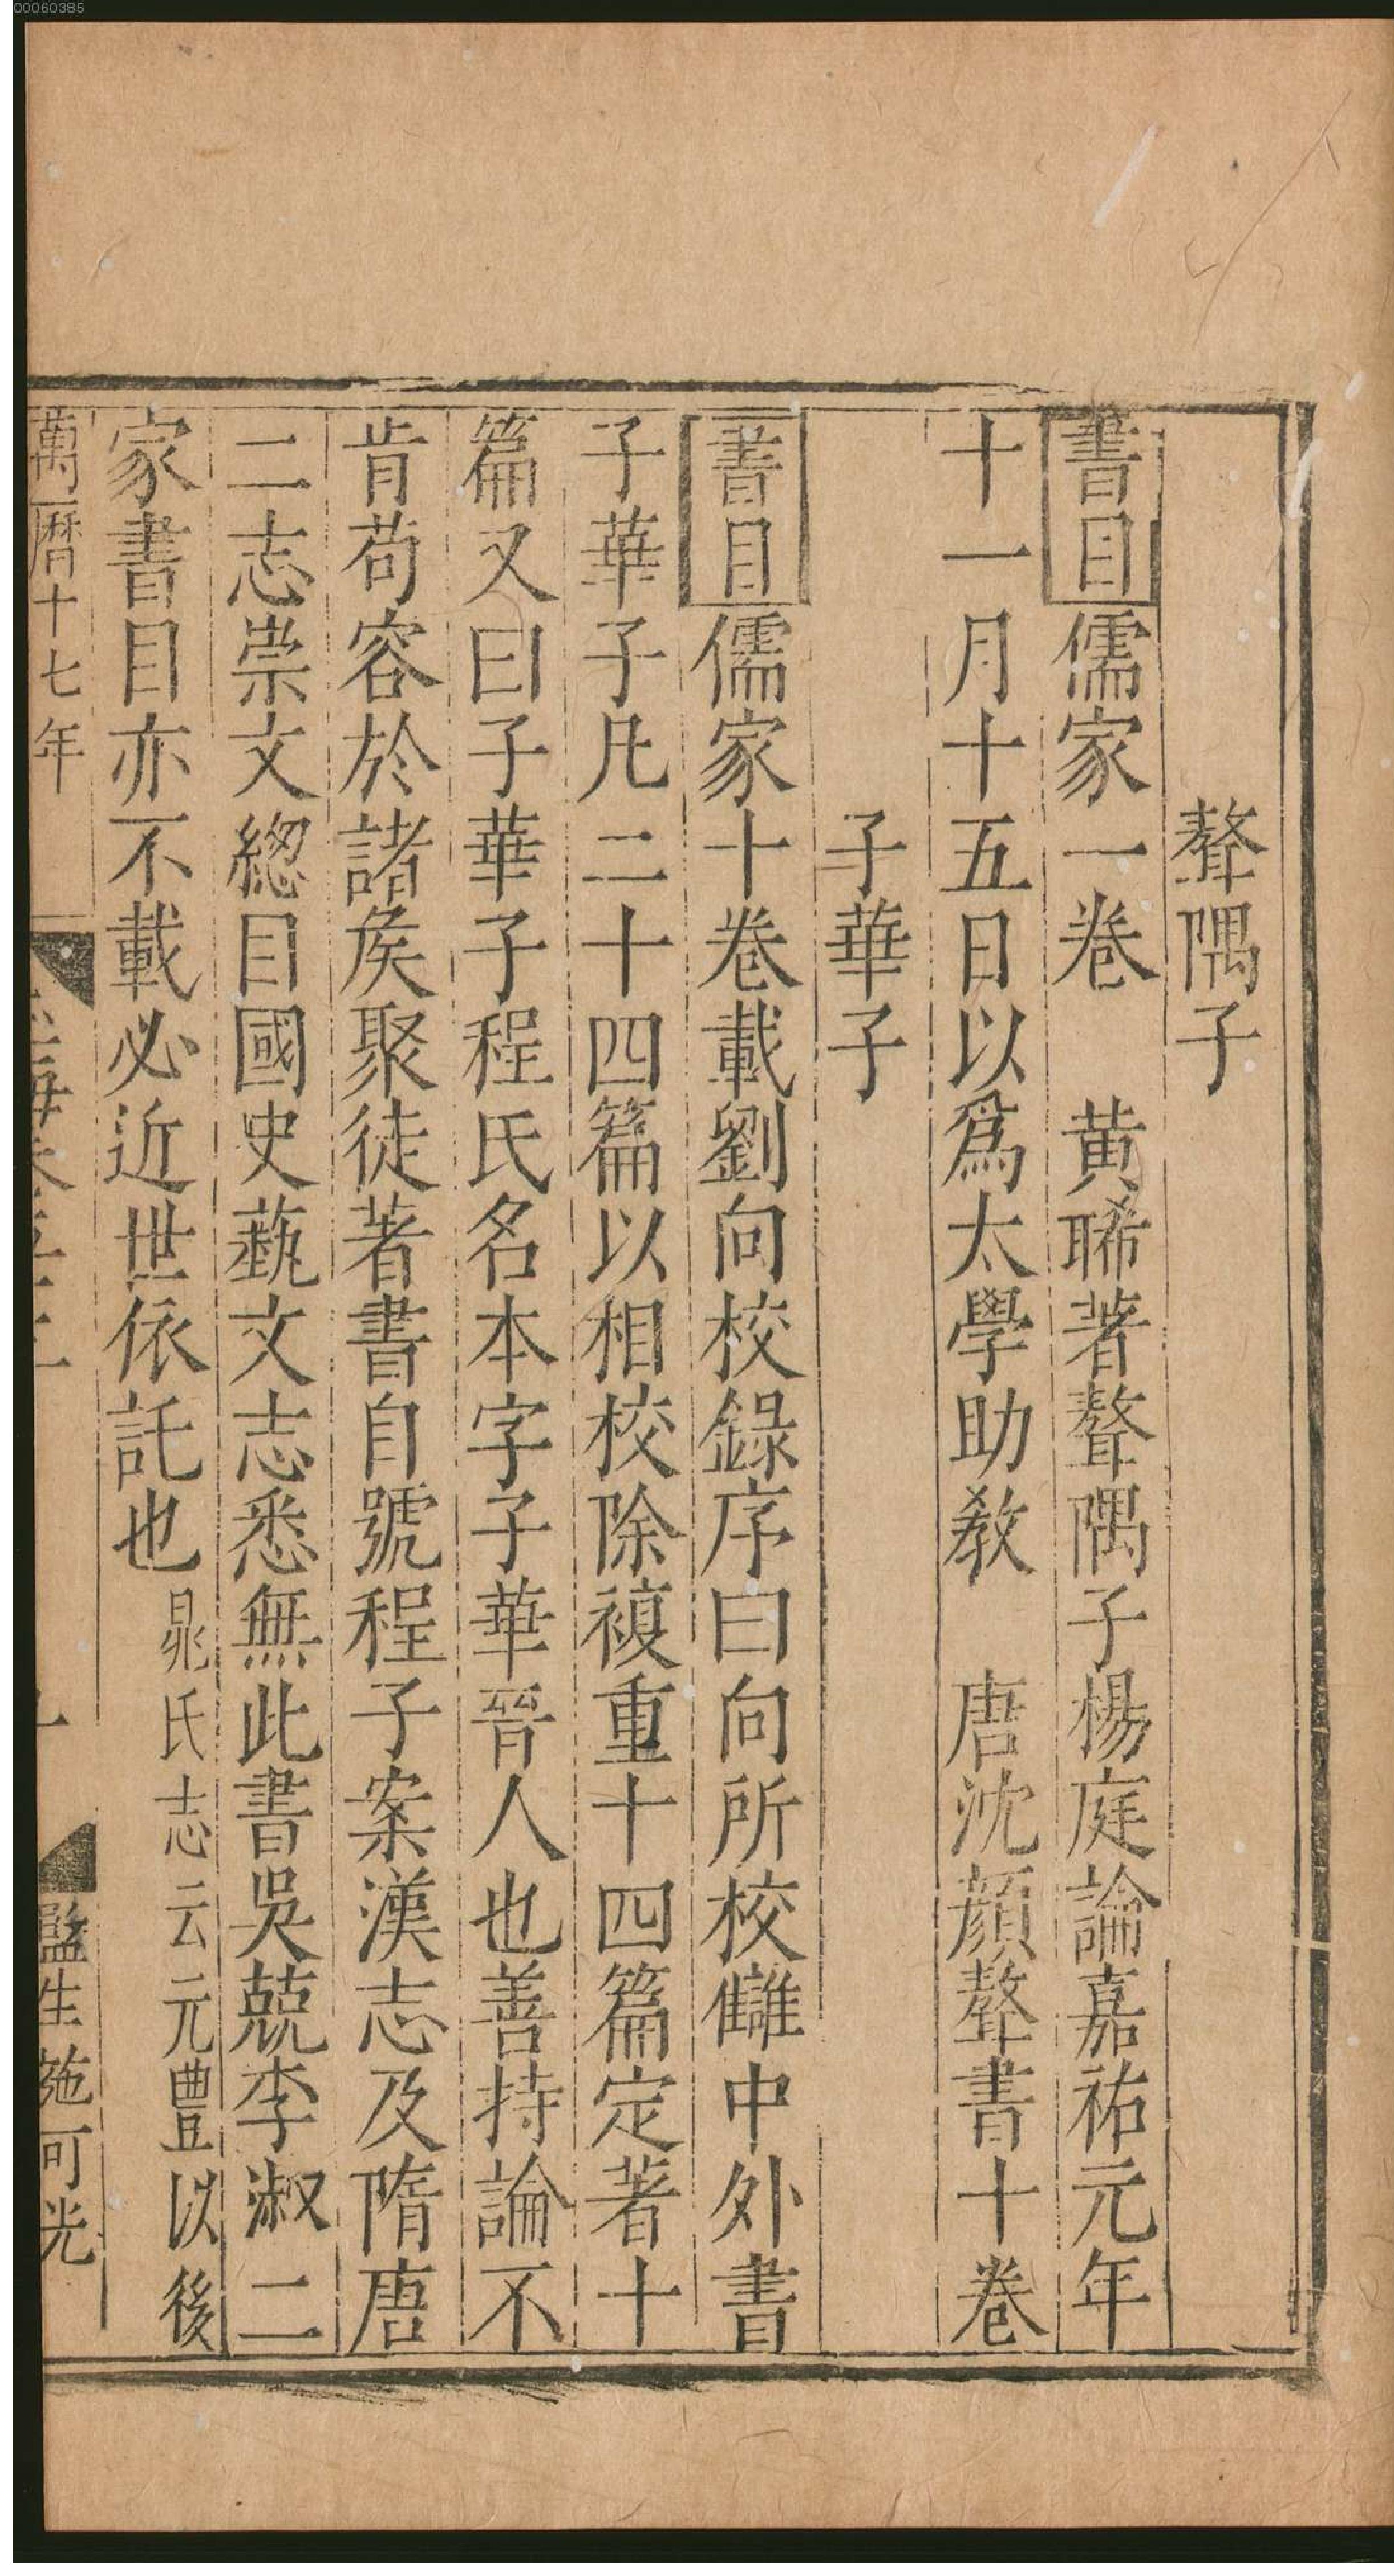 00060385
聱隅子
書目儒家一卷 黄晞著聱隅子楊庭論嘉祐元年
十一月十五日以爲太學助教 唐沈顔聱書十卷
子華子
書目儒家十卷載劉向校錄序曰向所校讎中外書
子華子凡二十四篇以相校除複重十四篇定著十
篇又曰子華子程氏名本字子華晉人也善持論不
肯苟容於諸矦聚徒著書自號程子案漢志及隋唐
二志崇文緫目國史藝文志悉無此書吳兢李淑二
家書目亦不載必近世依託也 晁氏志云元豐以後
萬曆十七年 監生施可光